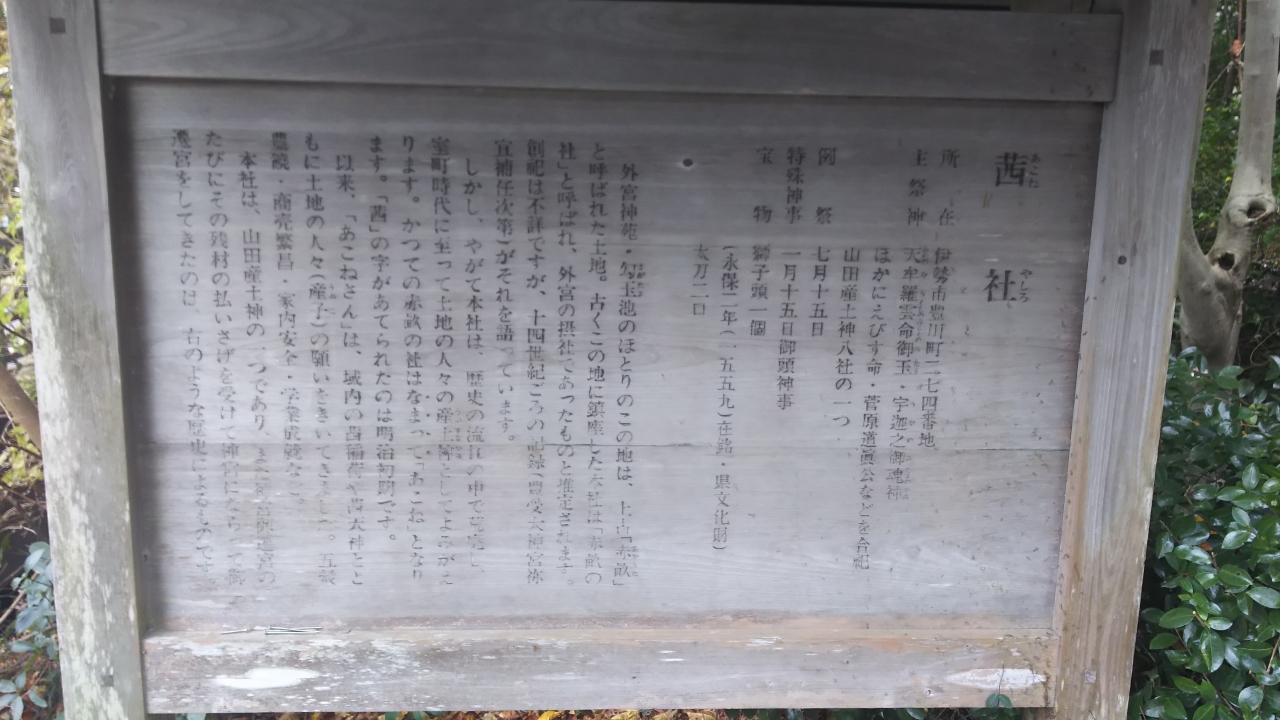 茜社
あこね やしろ
所在 伊勢市豊川町二七四番地
主祭神 天牟羅雲命御玉・宇迦之御魂神
ほかにえびす命・菅原道眞公などを合祀
山田産土神八社の一つ
例祭 七月十五日
特殊神事 一月十五日御頭神事
宝物 獅子頭一個
(永保二年(一五五九)在銘・県文化財)
太刀二口
外宮神苑・勾玉池のほとりのこの地は、上古「赤畝」
と呼ばれた土地。古くこの地に鎮座した本社は「赤畝の
社」と呼ばれ、外宮の摂社であったものと推定されます。
創祀は不詳ですが、十四世紀ごろの記録(豊受太神宮祢
宜補任次第)がそれを語っています。
しかし、やがて本社は、歴史の流れの中で荒廃し、
室町時代に至って土地の人々の産土神としてよみがえ
ります。かつての赤畝の社はなまって「あこね」となり
ます。「茜」の字があてられたのは明治初期です。
以来、「あこねさん」は、域内の茜稲荷や茜大神とと
もに土地の人々(産子)の願いをきいてきました。五穀
豊穣・商売繁昌・家内安全・学業成就など
本社は、山田産土神の一つであり、また
たびにその残材の払いさげを受けて神宮にならって御
遷宮をしてきたのは、右のような歴史によるものです。